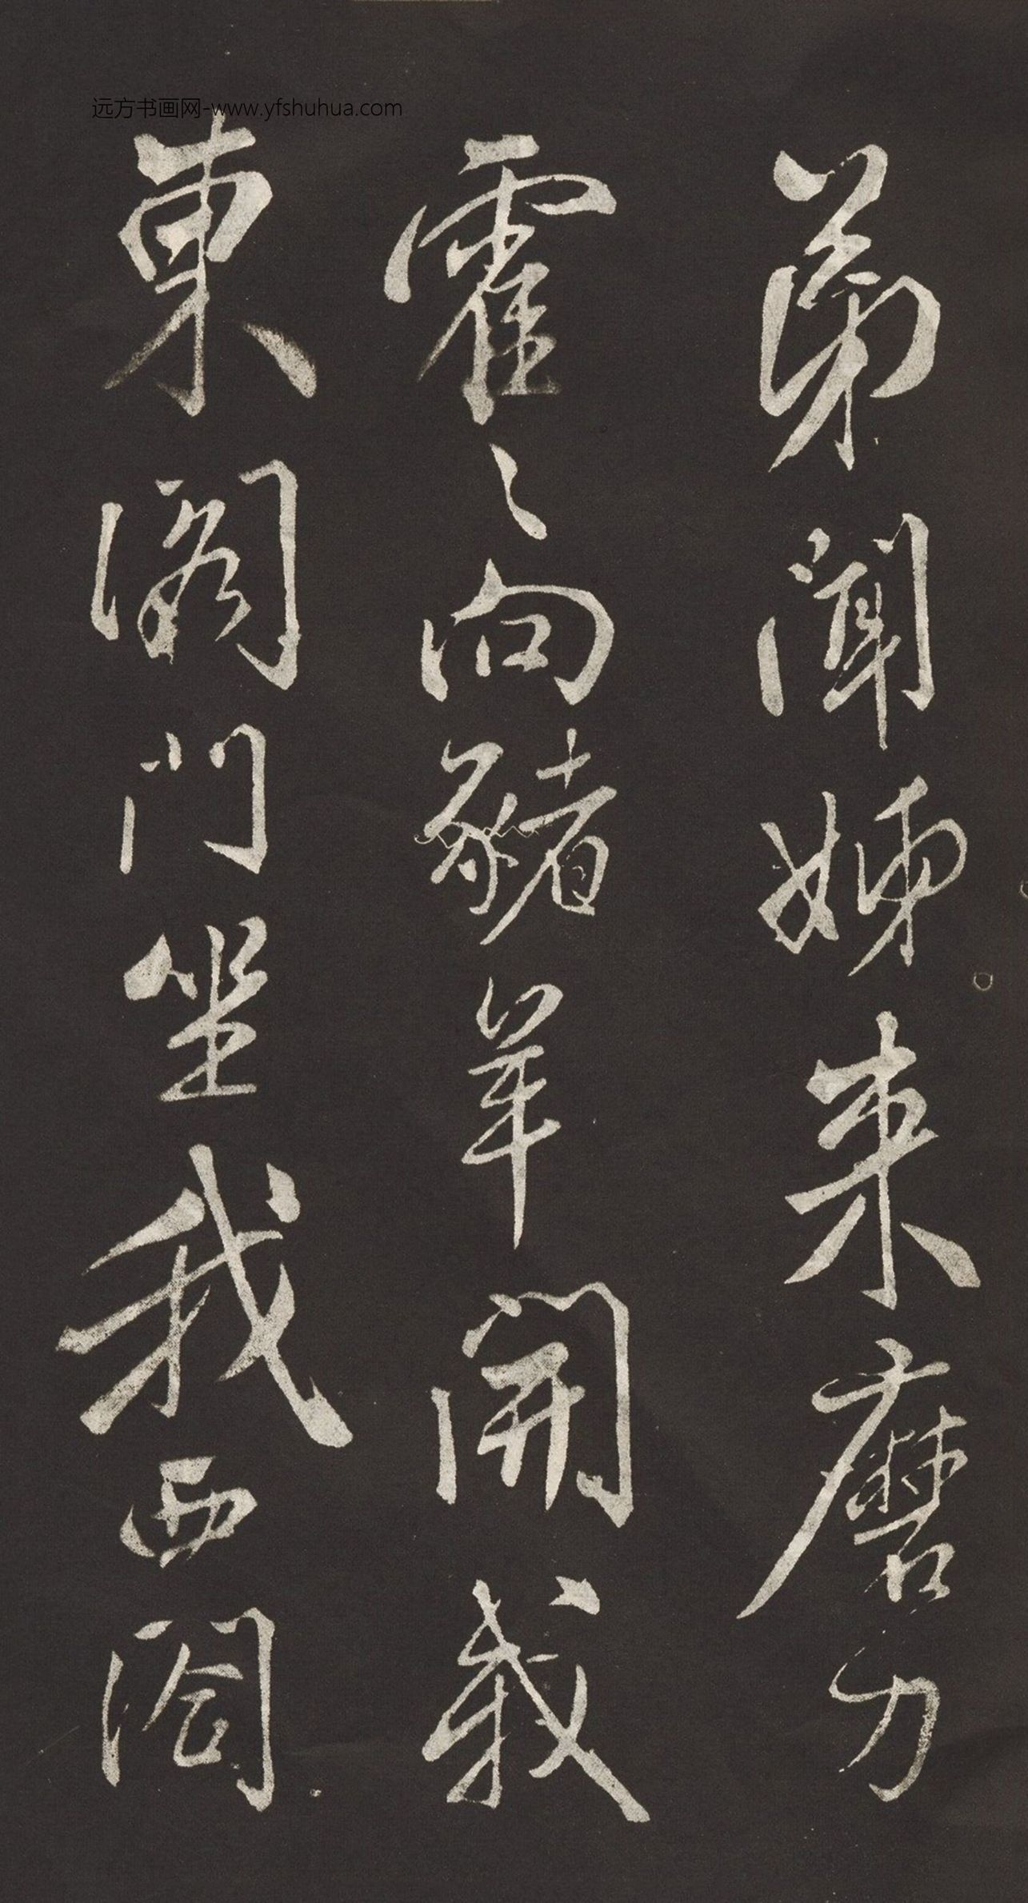 远方书画网-www.yfshuhua.com
弟聞姊来磨刀
霍〻向豬羊開我
東閣門坐我西閣